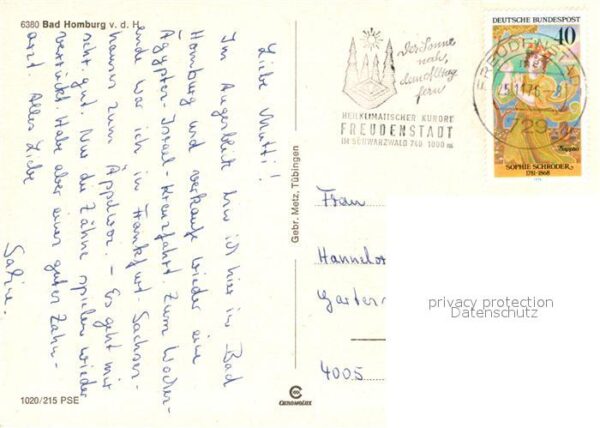 6380 Bad Homburg v. d. H.
Liebe Mutti!
Im Augenblick bin ich hier in Bad
Homburg und verkaufe wieder eine
Ägypten-Israel-Kreuzfahrt. Zum Wochen-
ende war ich in Frankfurt-Sachsen-
hausen zum Äppelwoi. - Es geht mir
sehr gut. Nur die Zähne spielen wieder
verrückt. Habe aber einen guten Zahn-
arzt. Alles Liebe
Sabine.
1020/215 PSE
Gebr. Metz, Tübingen
CHROMOLUX
Der Sonne
nah,
dem Alltag
fern
HEILKLIMATISCHER KURORT
FREUDENSTADT
IM SCHWARZWALD 740-1000 m
FREUDENSTADT
729
DEUTSCHE BUNDESPOST
40
Sappho
SOPHIE SCHRÖDER
1781-1868
Frau
Hannelo
Garten
4005
privacy protection
Datenschutz